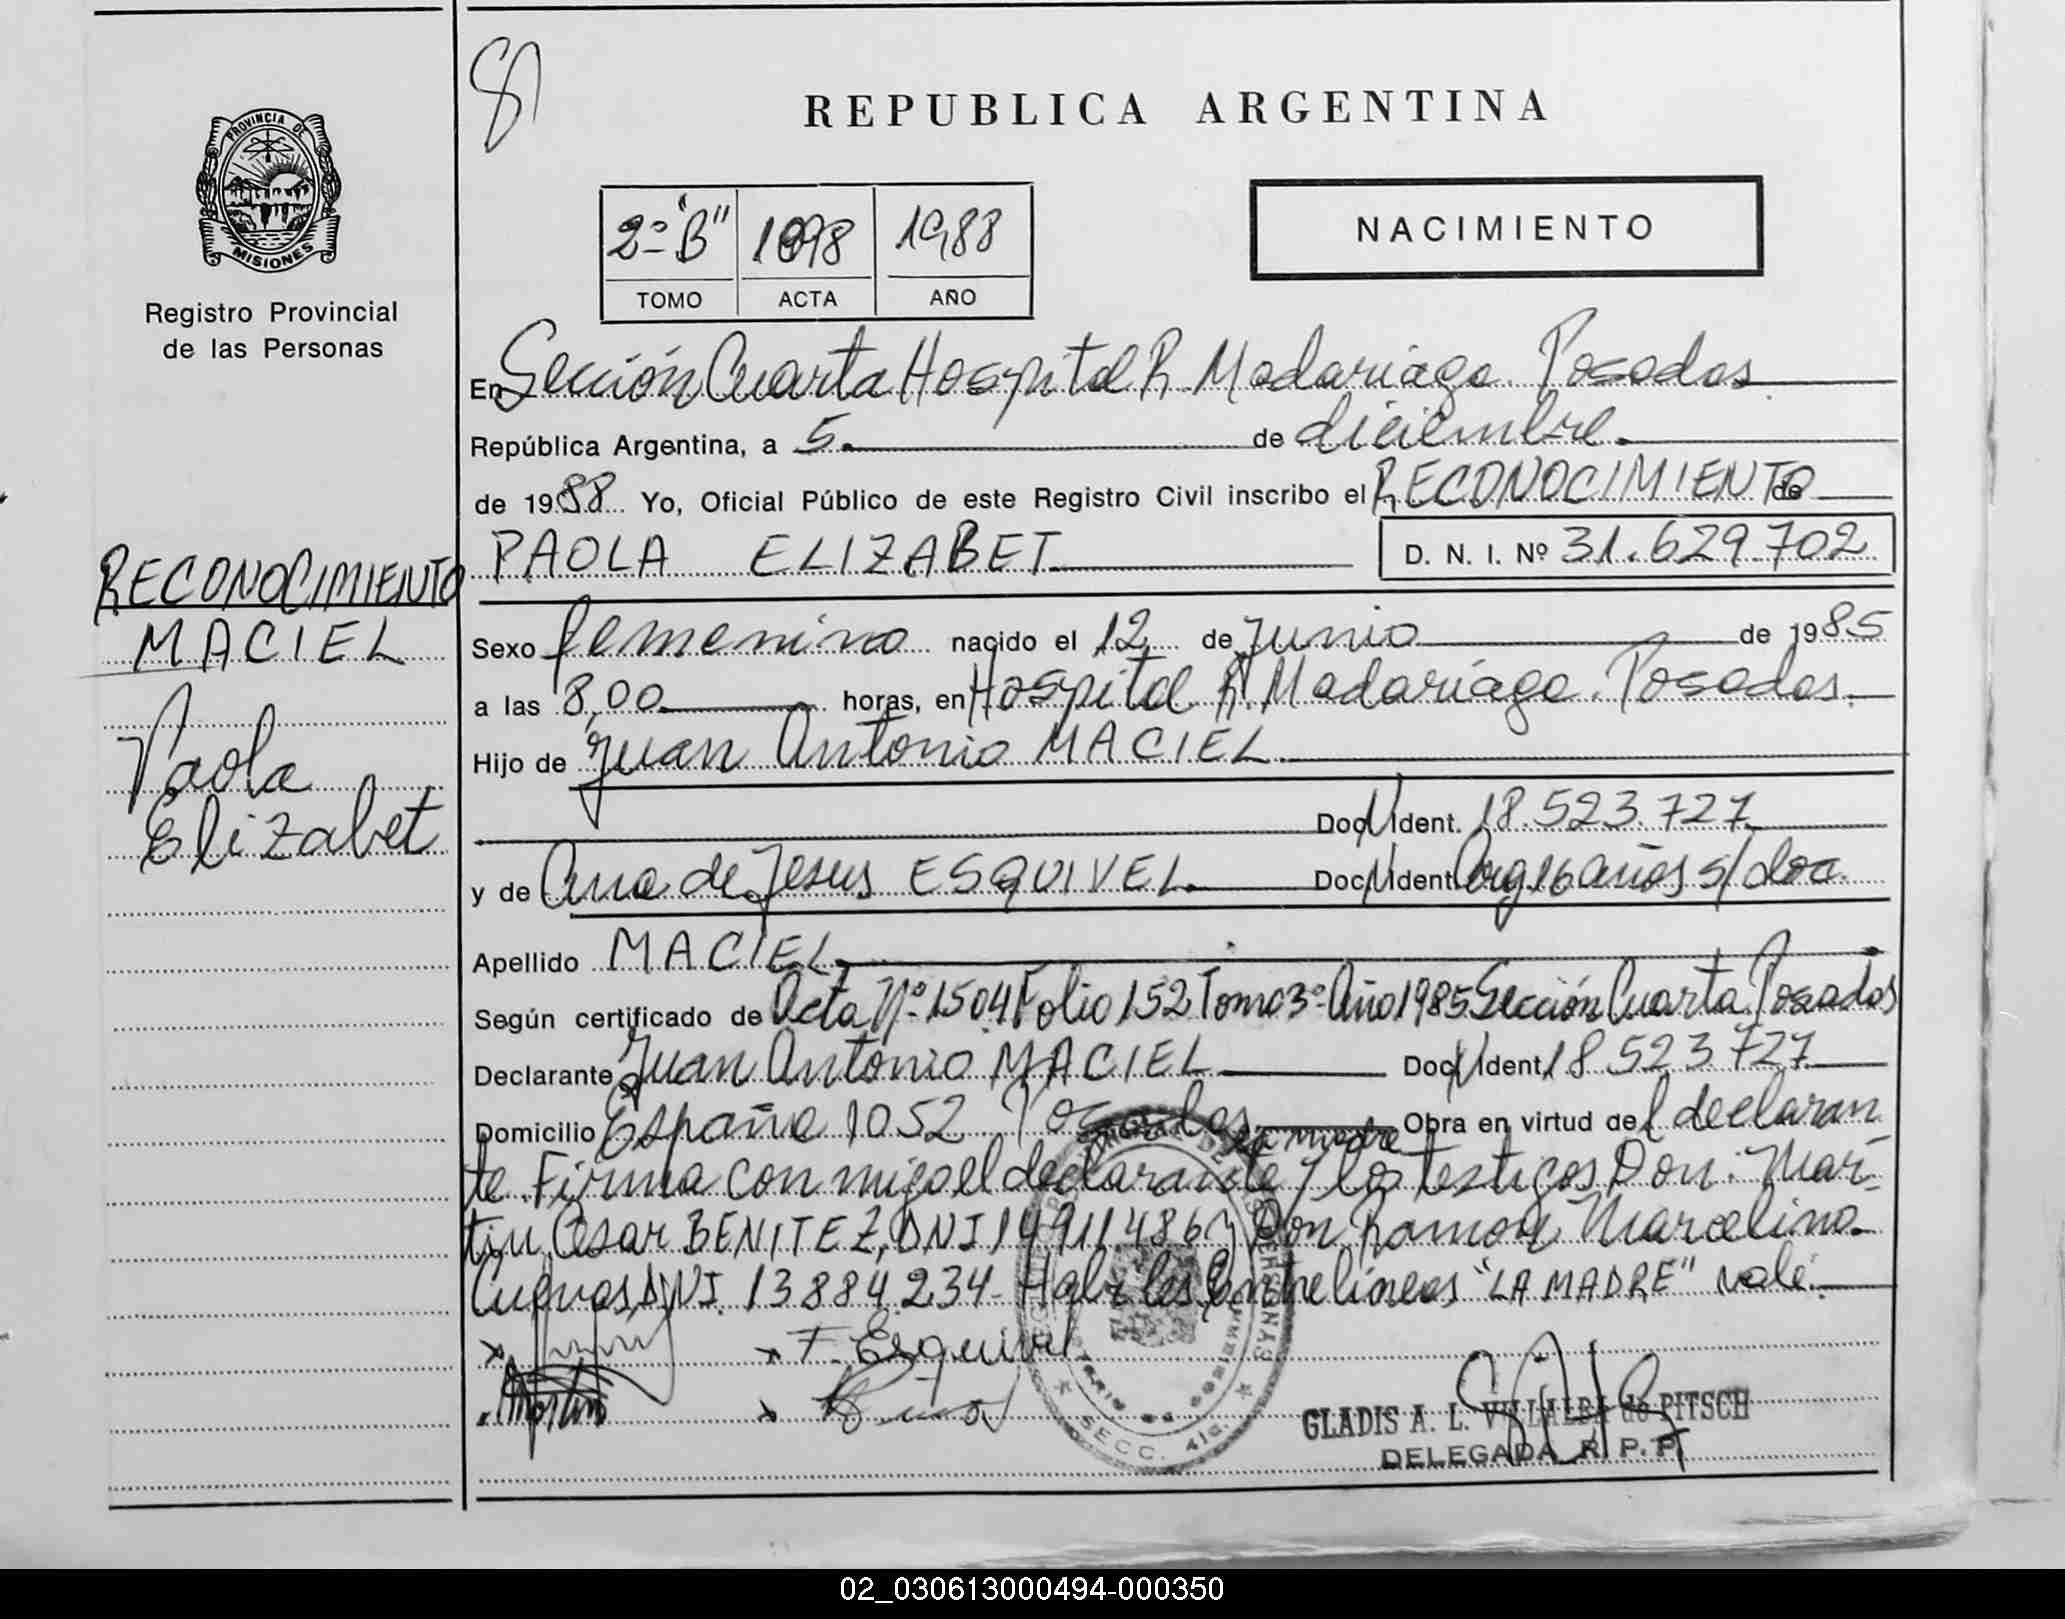 81
REPUBLICA ARGENTINA
PROVINCIA DE
MISIONES
Registro Provincial
de las Personas
NACIMIENTO
2º "B" 1098 1988
TOMO ACTA AÑO
En Sección Cuarta Hospital R. Madariaga. Posadas
República Argentina, a 5 de diciembre
de 1988 Yo, Oficial Público de este Registro Civil inscribo el RECONOCIMIENTO de
PAOLA ELIZABET D. N. I. Nº 31.629.702
RECONOCIMIENTO
MACIEL
Paola
Elizabet
Sexo femenino nacido el 12 de Junio de 1985
a las 8,00 horas, en Hospital R. Madariaga. Posadas.
Hijo de Juan Antonio MACIEL
Doc. N. Ident. 18.523.727
y de Ana de Jesus ESQUIVEL Doc. N. Ident. Arg 16 años s/doc.
Apellido MACIEL
Según certificado de Acta Nº 1504 Folio 152 Tomo 3º Año 1985 Sección Cuarta Posadas
Declarante Juan Antonio MACIEL Doc. N. Ident. 18.523.727
Domicilio España 1052 Posadas Obra en virtud del declaran
la madre
te. Firma con migo el declarante y los testigos Don: Mar-
tin Cesar BENITEZ, DNI 14911486 y Don Ramon Marcelino
Cuevas DNI. 13884.234- Entrelíneas "LA MADRE" vale.
F. Esquivel
Martin
SECC. 4ta.
GLADIS A. L. VILLALBA de PITSCH
DELEGADA R. P. P.
02_030613000494-000350